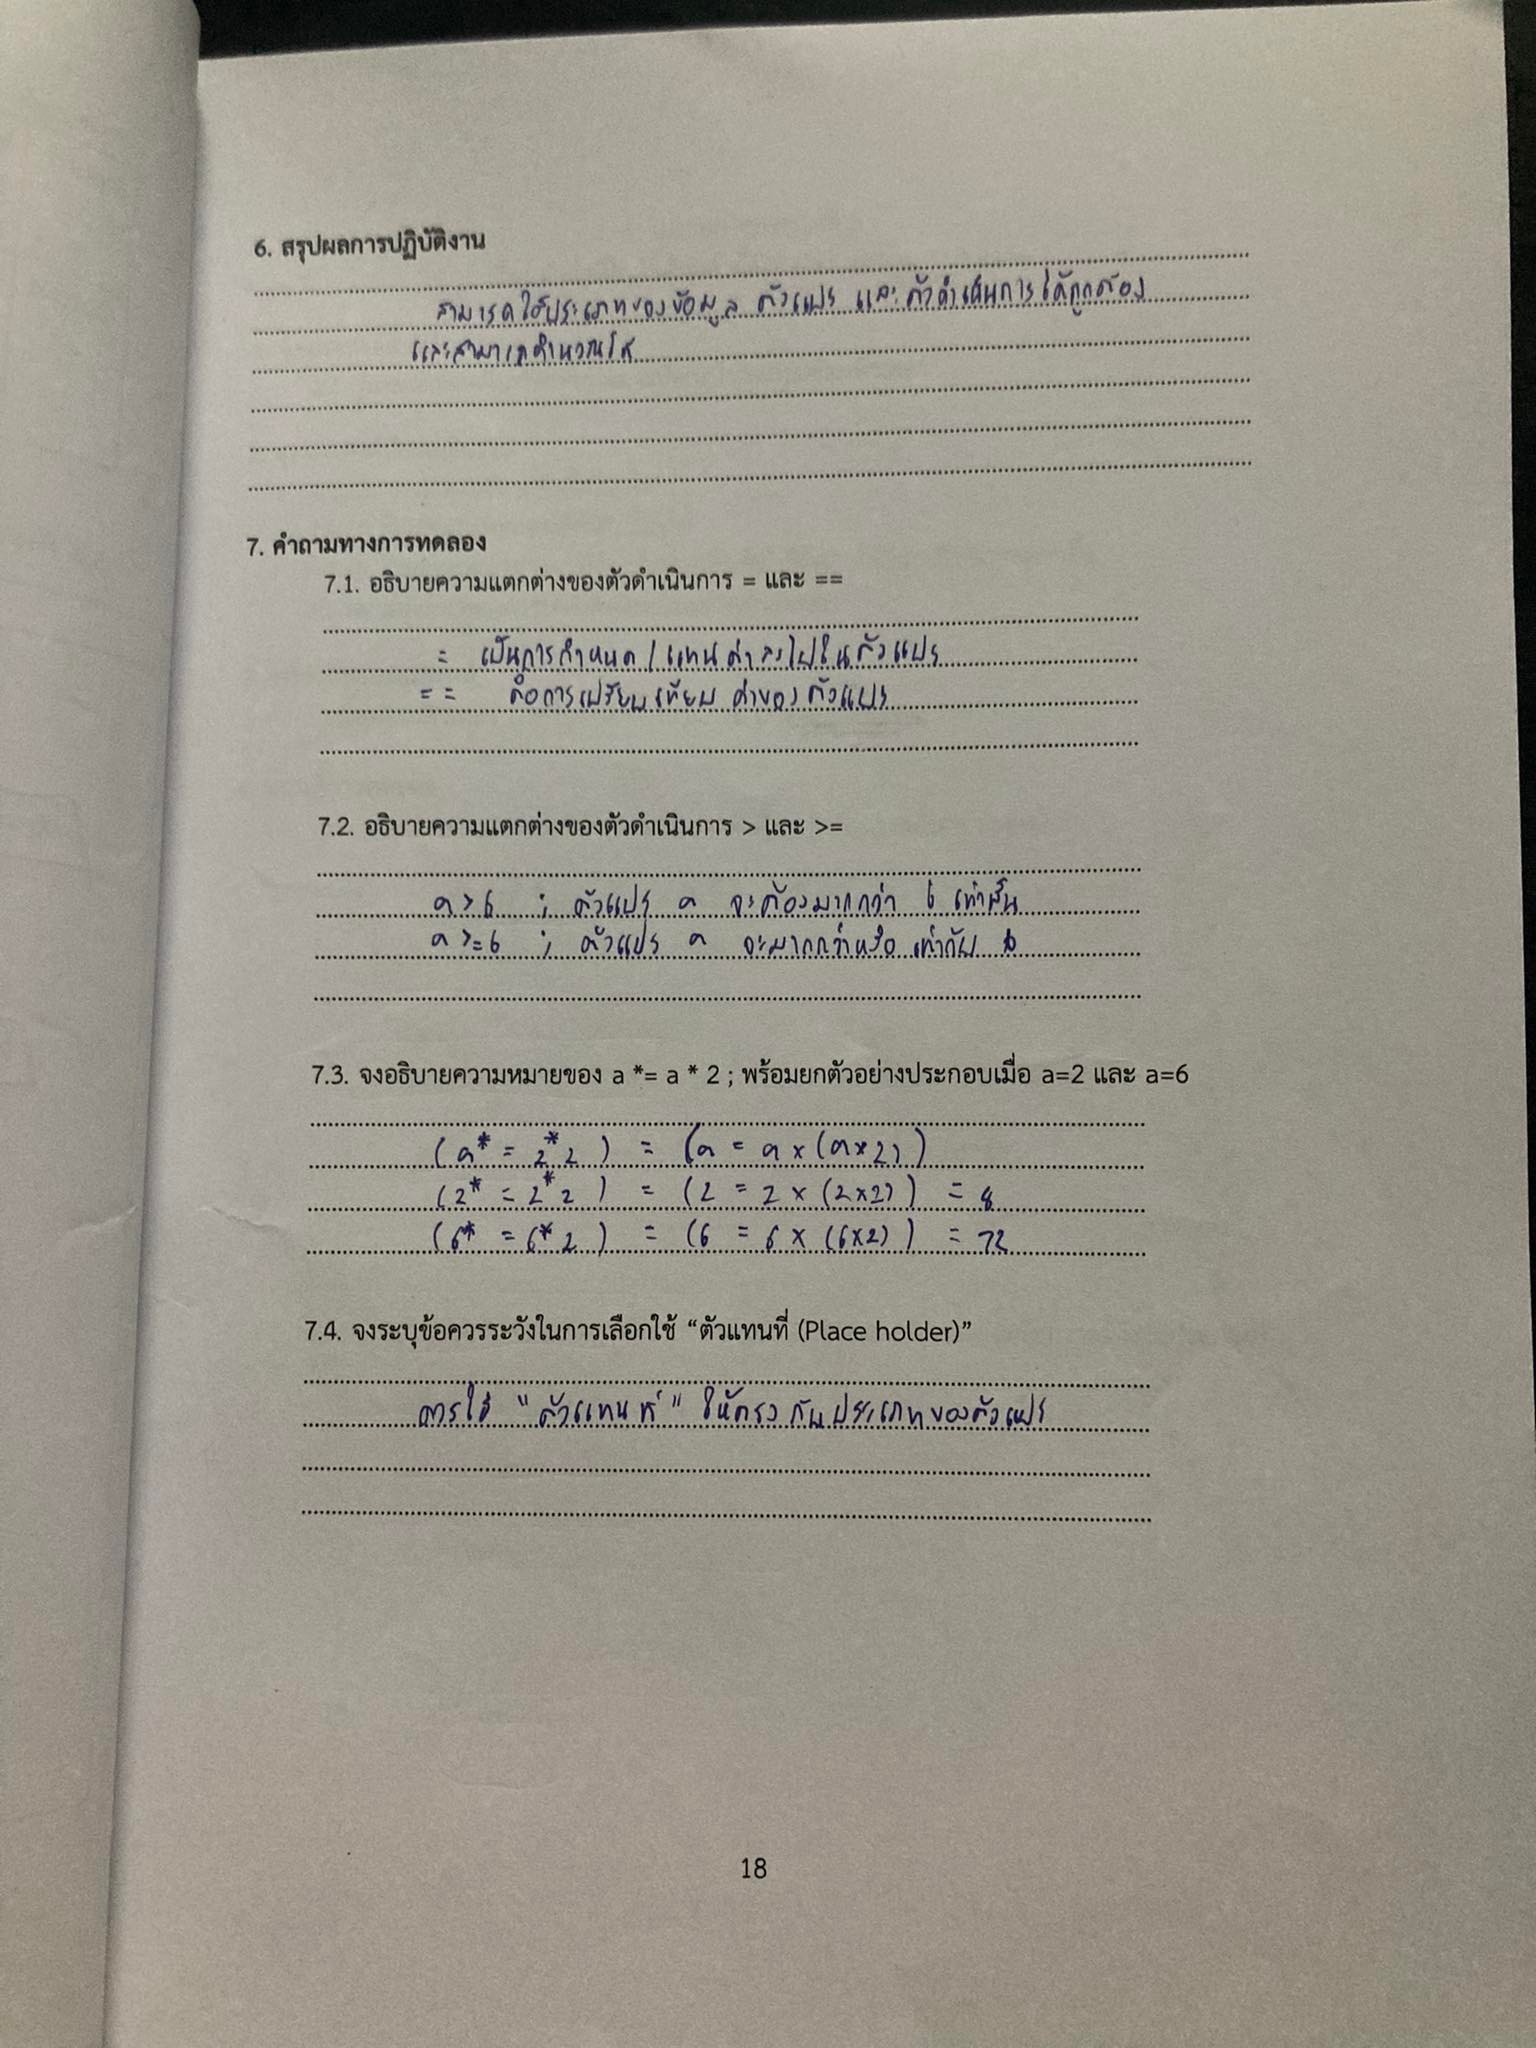 6. สรุปผลการปฏิบัติงาน
สามารถใช้ประเภทของข้อมูล ตัวแปร และตัวดำเนินการได้ถูกต้อง
และสามารถคำนวณได้
7. คำถามทางการทดลอง
7.1. อธิบายความแตกต่างของตัวดำเนินการ = และ ==
= เป็นการกำหนด / แทนค่าลงไปในตัวแปร
== คือการเปรียบเทียบ ค่าของตัวแปร
7.2. อธิบายความแตกต่างของตัวดำเนินการ > และ >=
a > 6 ; ตัวแปร a จะต้องมากกว่า 6 เท่านั้น
a >= 6 ; ตัวแปร a จะมากกว่าหรือ เท่ากับ 6
7.3. จงอธิบายความหมายของ a *= a * 2 ; พร้อมยกตัวอย่างประกอบเมื่อ a=2 และ a=6
(a* = 2*2) = (a = a x (a x 2))
(2* = 2*2) = (2 = 2 x (2x2)) = 8
(6* = 6*2) = (6 = 6 x (6x2)) = 72
7.4. จงระบุข้อควรระวังในการเลือกใช้ “ตัวแทนที่ (Place holder)”
การใช้ "ตัวแทนที่" ให้ตรงกับประเภทของตัวแปร
18